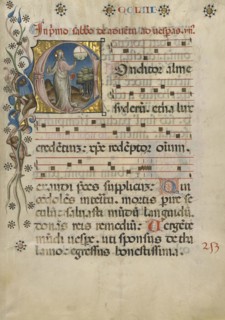 CCLIII
In primo sabbo de adventu ad vesperas. ym.
Conditor alme
siderum etna lux
credentium xpe redemptor oīum
exaudi preces supplicum Qui
condolens interitu mortis perire se
culum salvasti mūdū languidū
donans reis remediū Vergēte
mūdi vespe uti sponsus de tha
lamo egressus honestissima
253